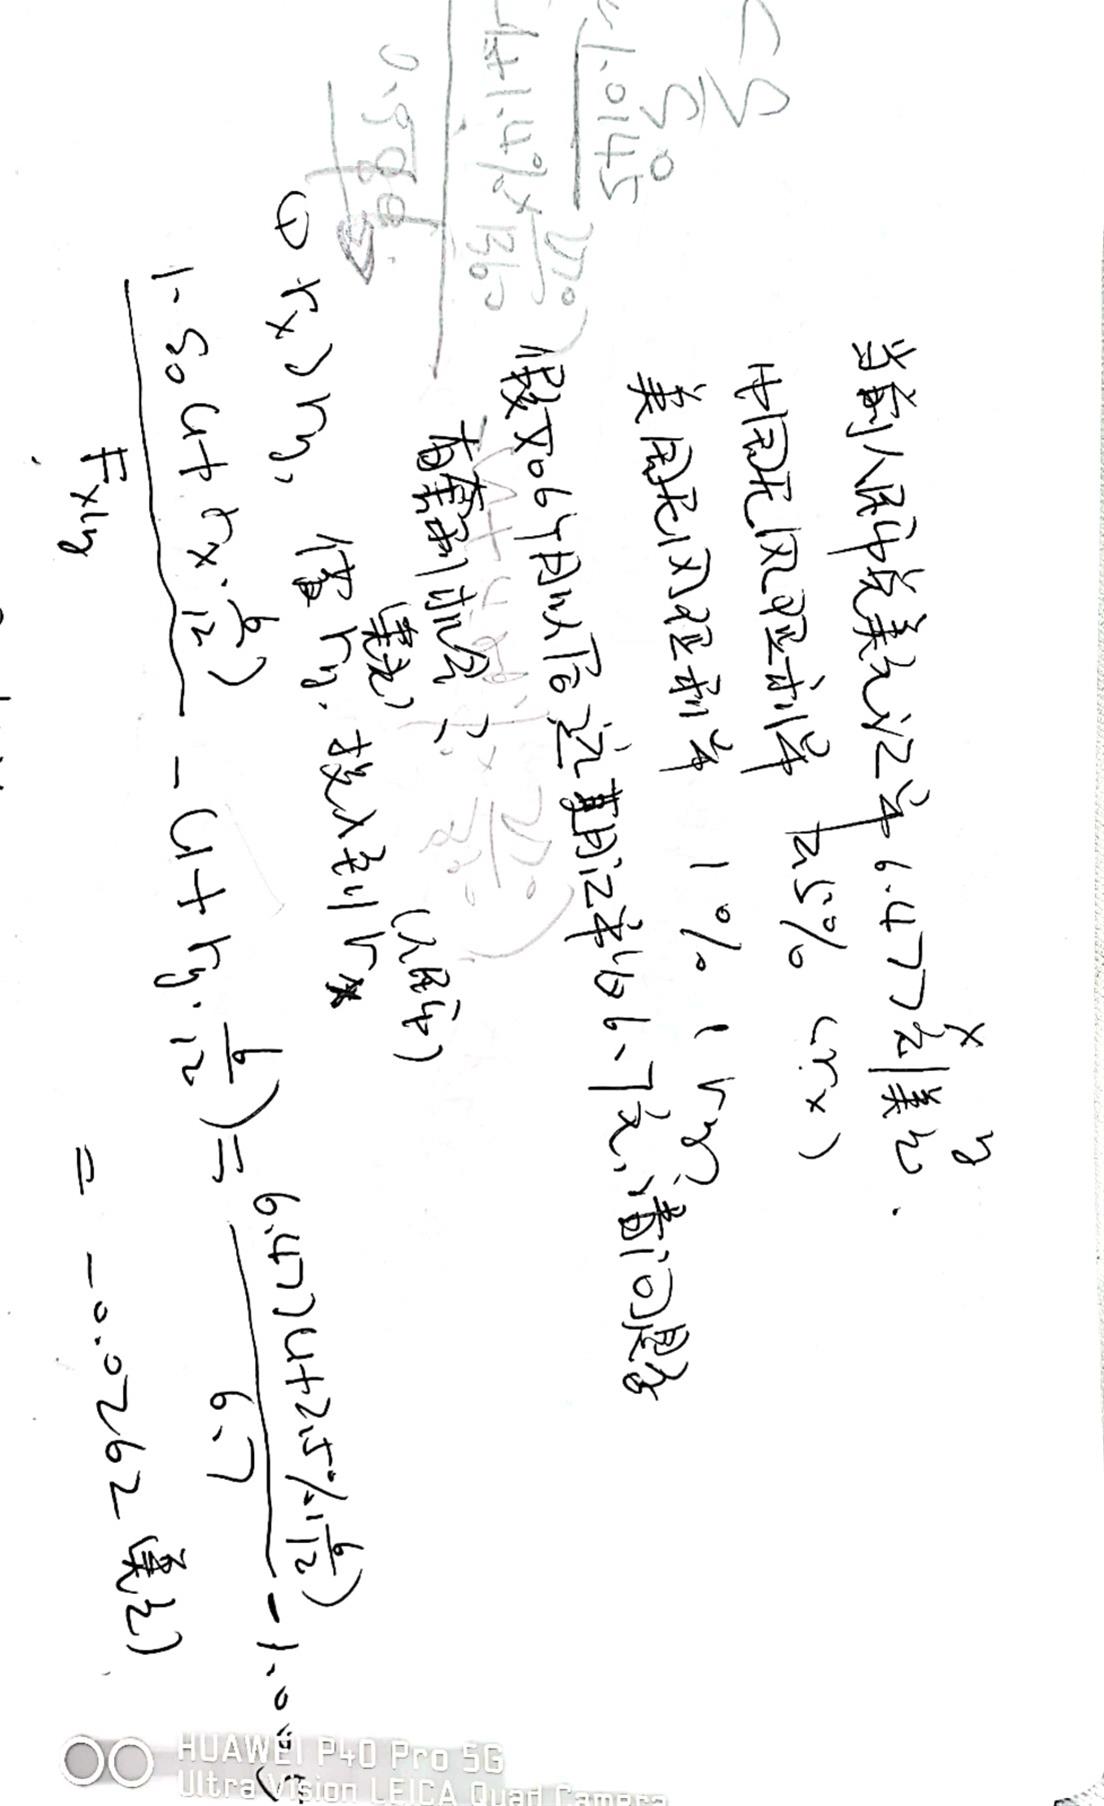 当前人民币兑美元汇率6.477元/美元.
x y
中国无风险利率 2.5% (rx)
美国无风险利率 1% (ry)
假如6个月以后远期汇率为6.7元,请问是
否有套利机会?
(美元) (人民币)
① rx > ry, 借 ry, 投入到 rx
1. S0 (1+rx·6/12) / Fx/y - (1+ry·6/12) = 6.477(1+2.5%·6/12) / 6.7 - 1.00
= -0.0262 美元
1.0145
S0
1+1.4%×
360
0.899
HUAWEI P40 Pro 5G
Ultra Vision LEICA Quad Camera